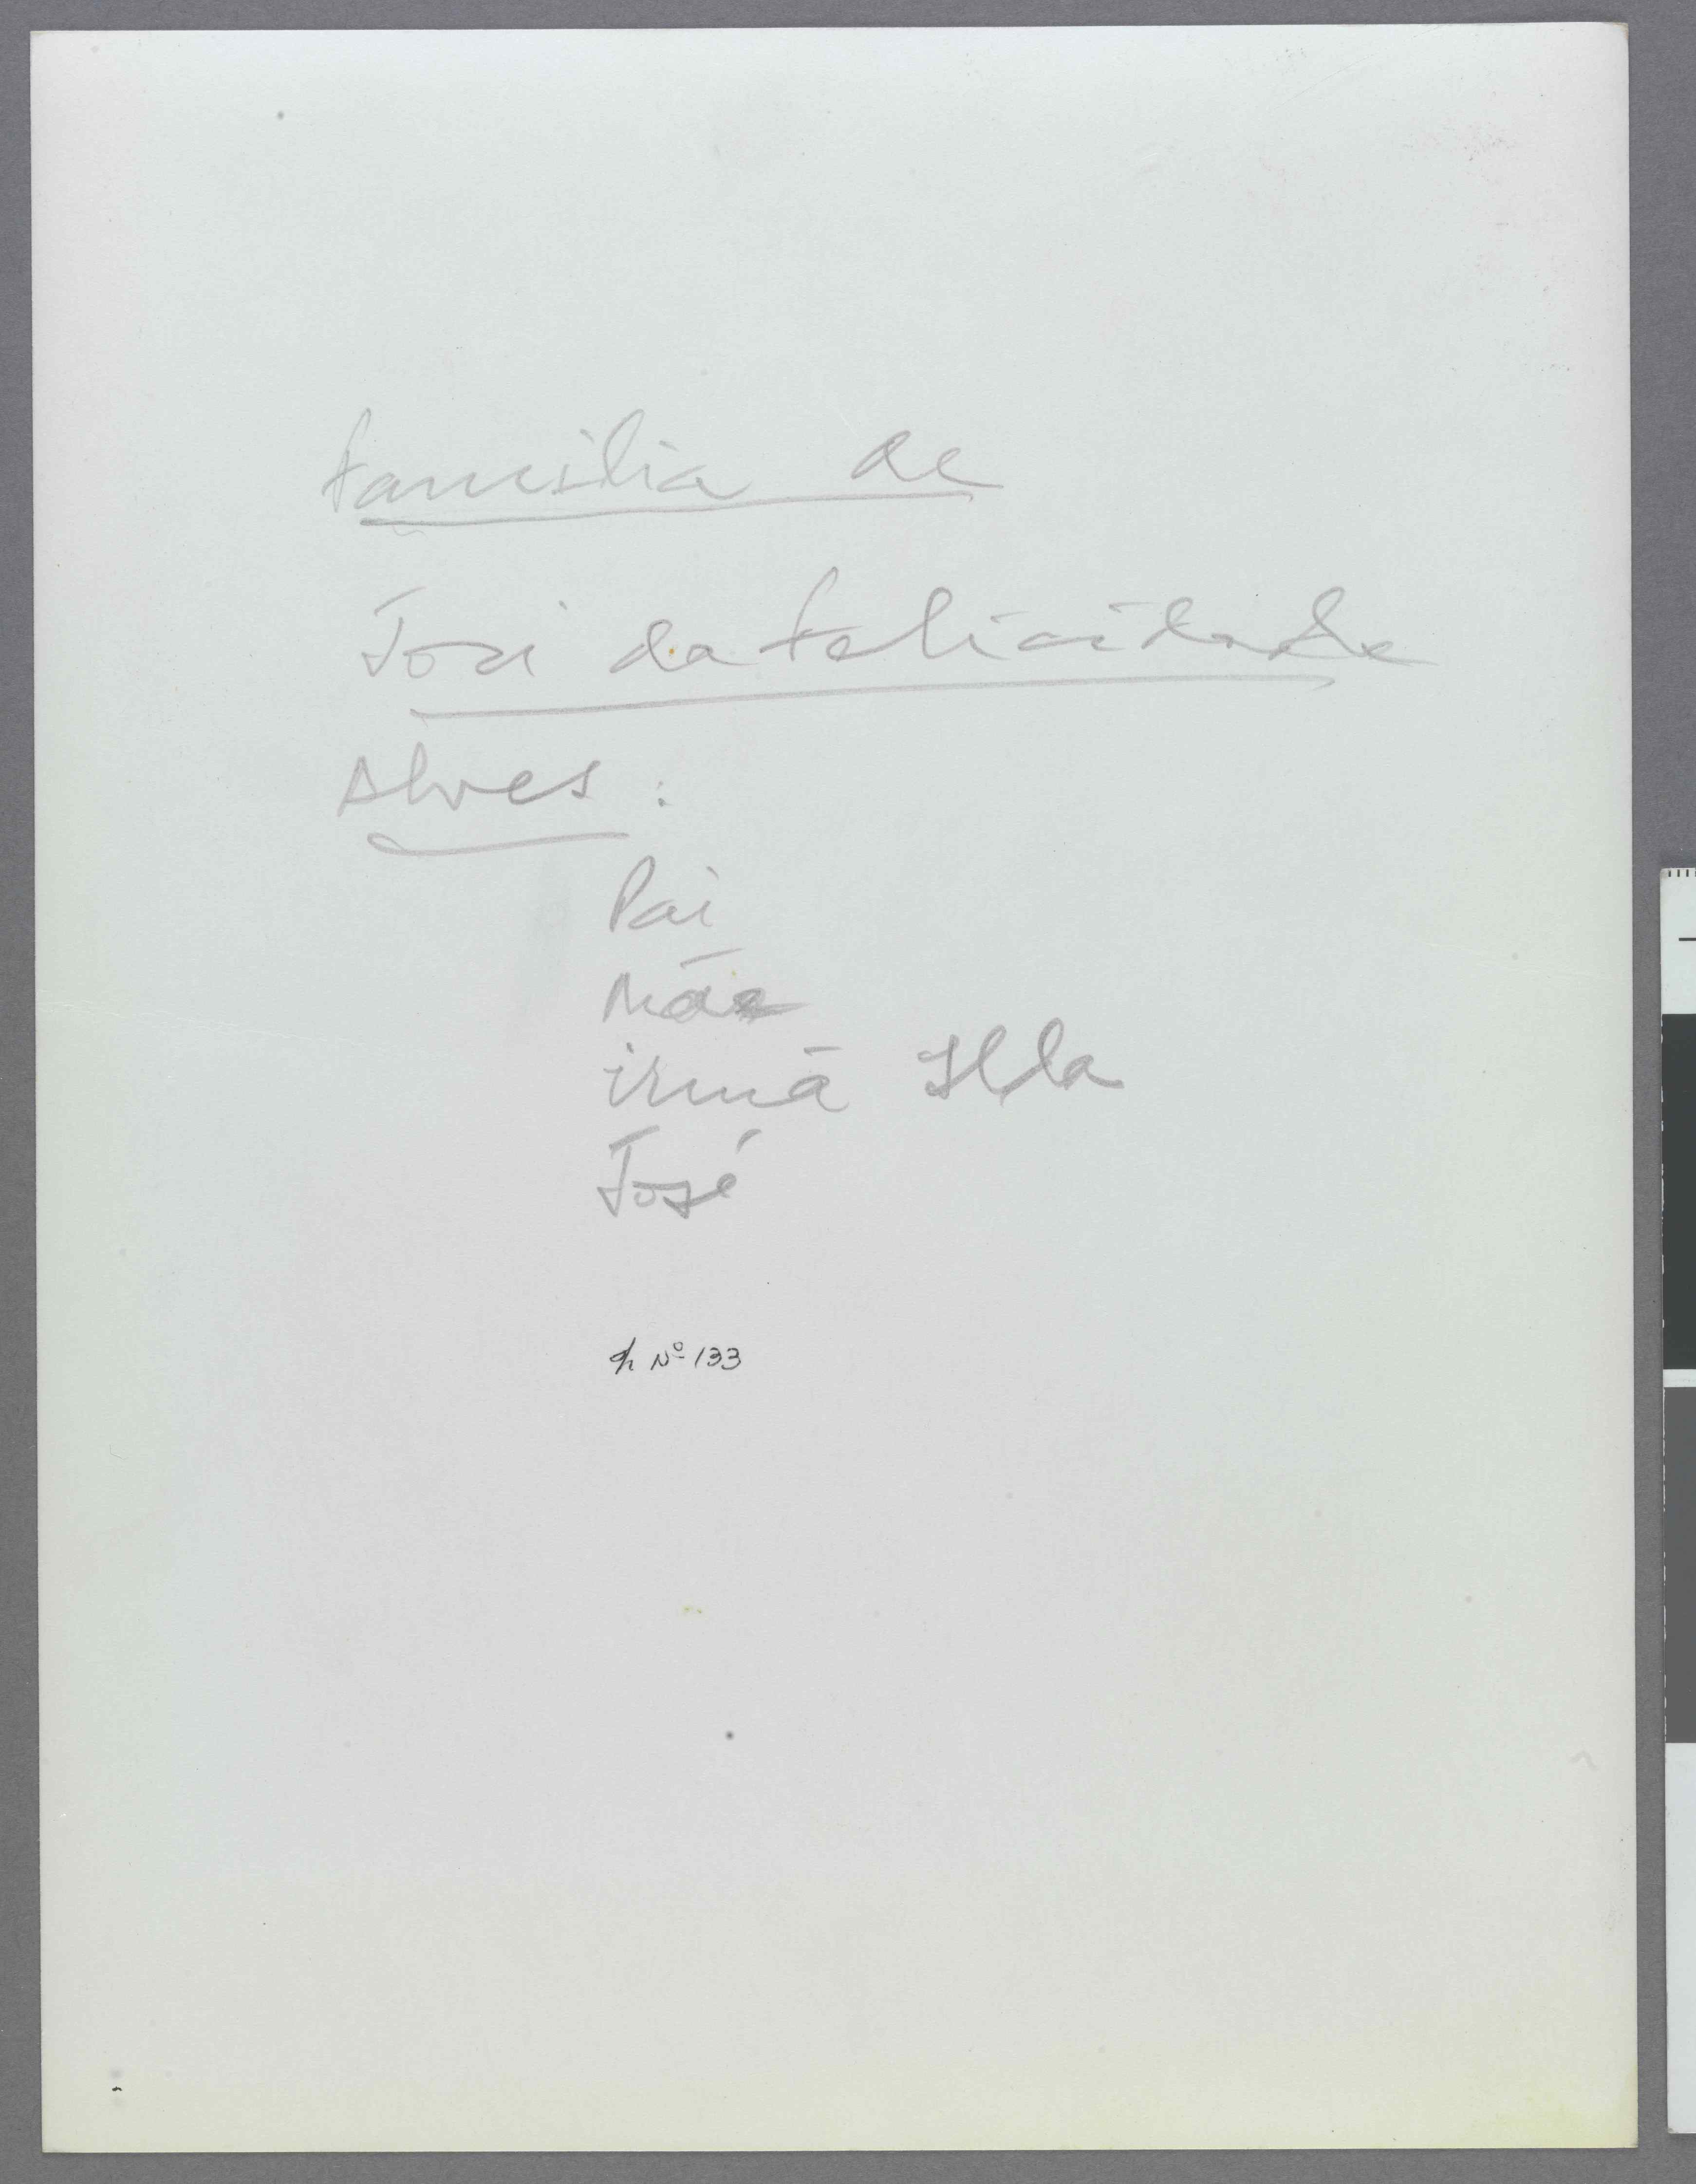 família de
José da Felicidade
Alves :
Pai
Mãe
irmã Ilda
José
Nº 133